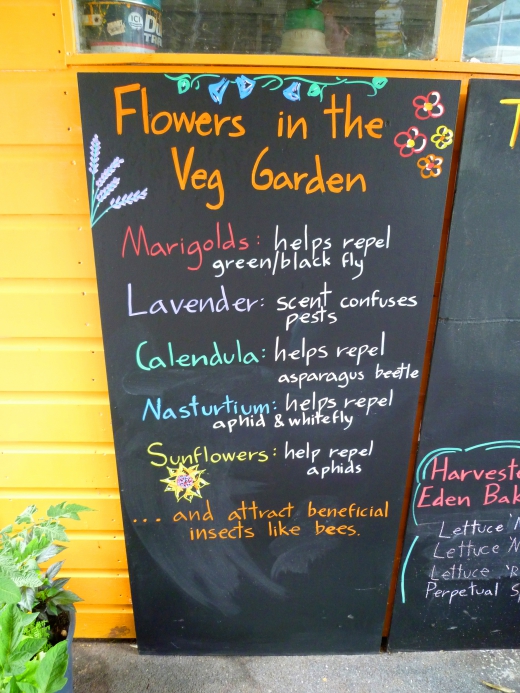 Flowers in the
Veg Garden
Marigolds: helps repel
green/black fly
Lavender: scent confuses
pests
Calendula: helps repel
asparagus beetle
Nasturtium: helps repel
aphid & whitefly
Sunflowers: help repel
aphids
... and attract beneficial
insects like bees.
Harveste
Eden Bak
Lettuce 'N
Lettuce 'N
Lettuce 'R
Perpetual Sp